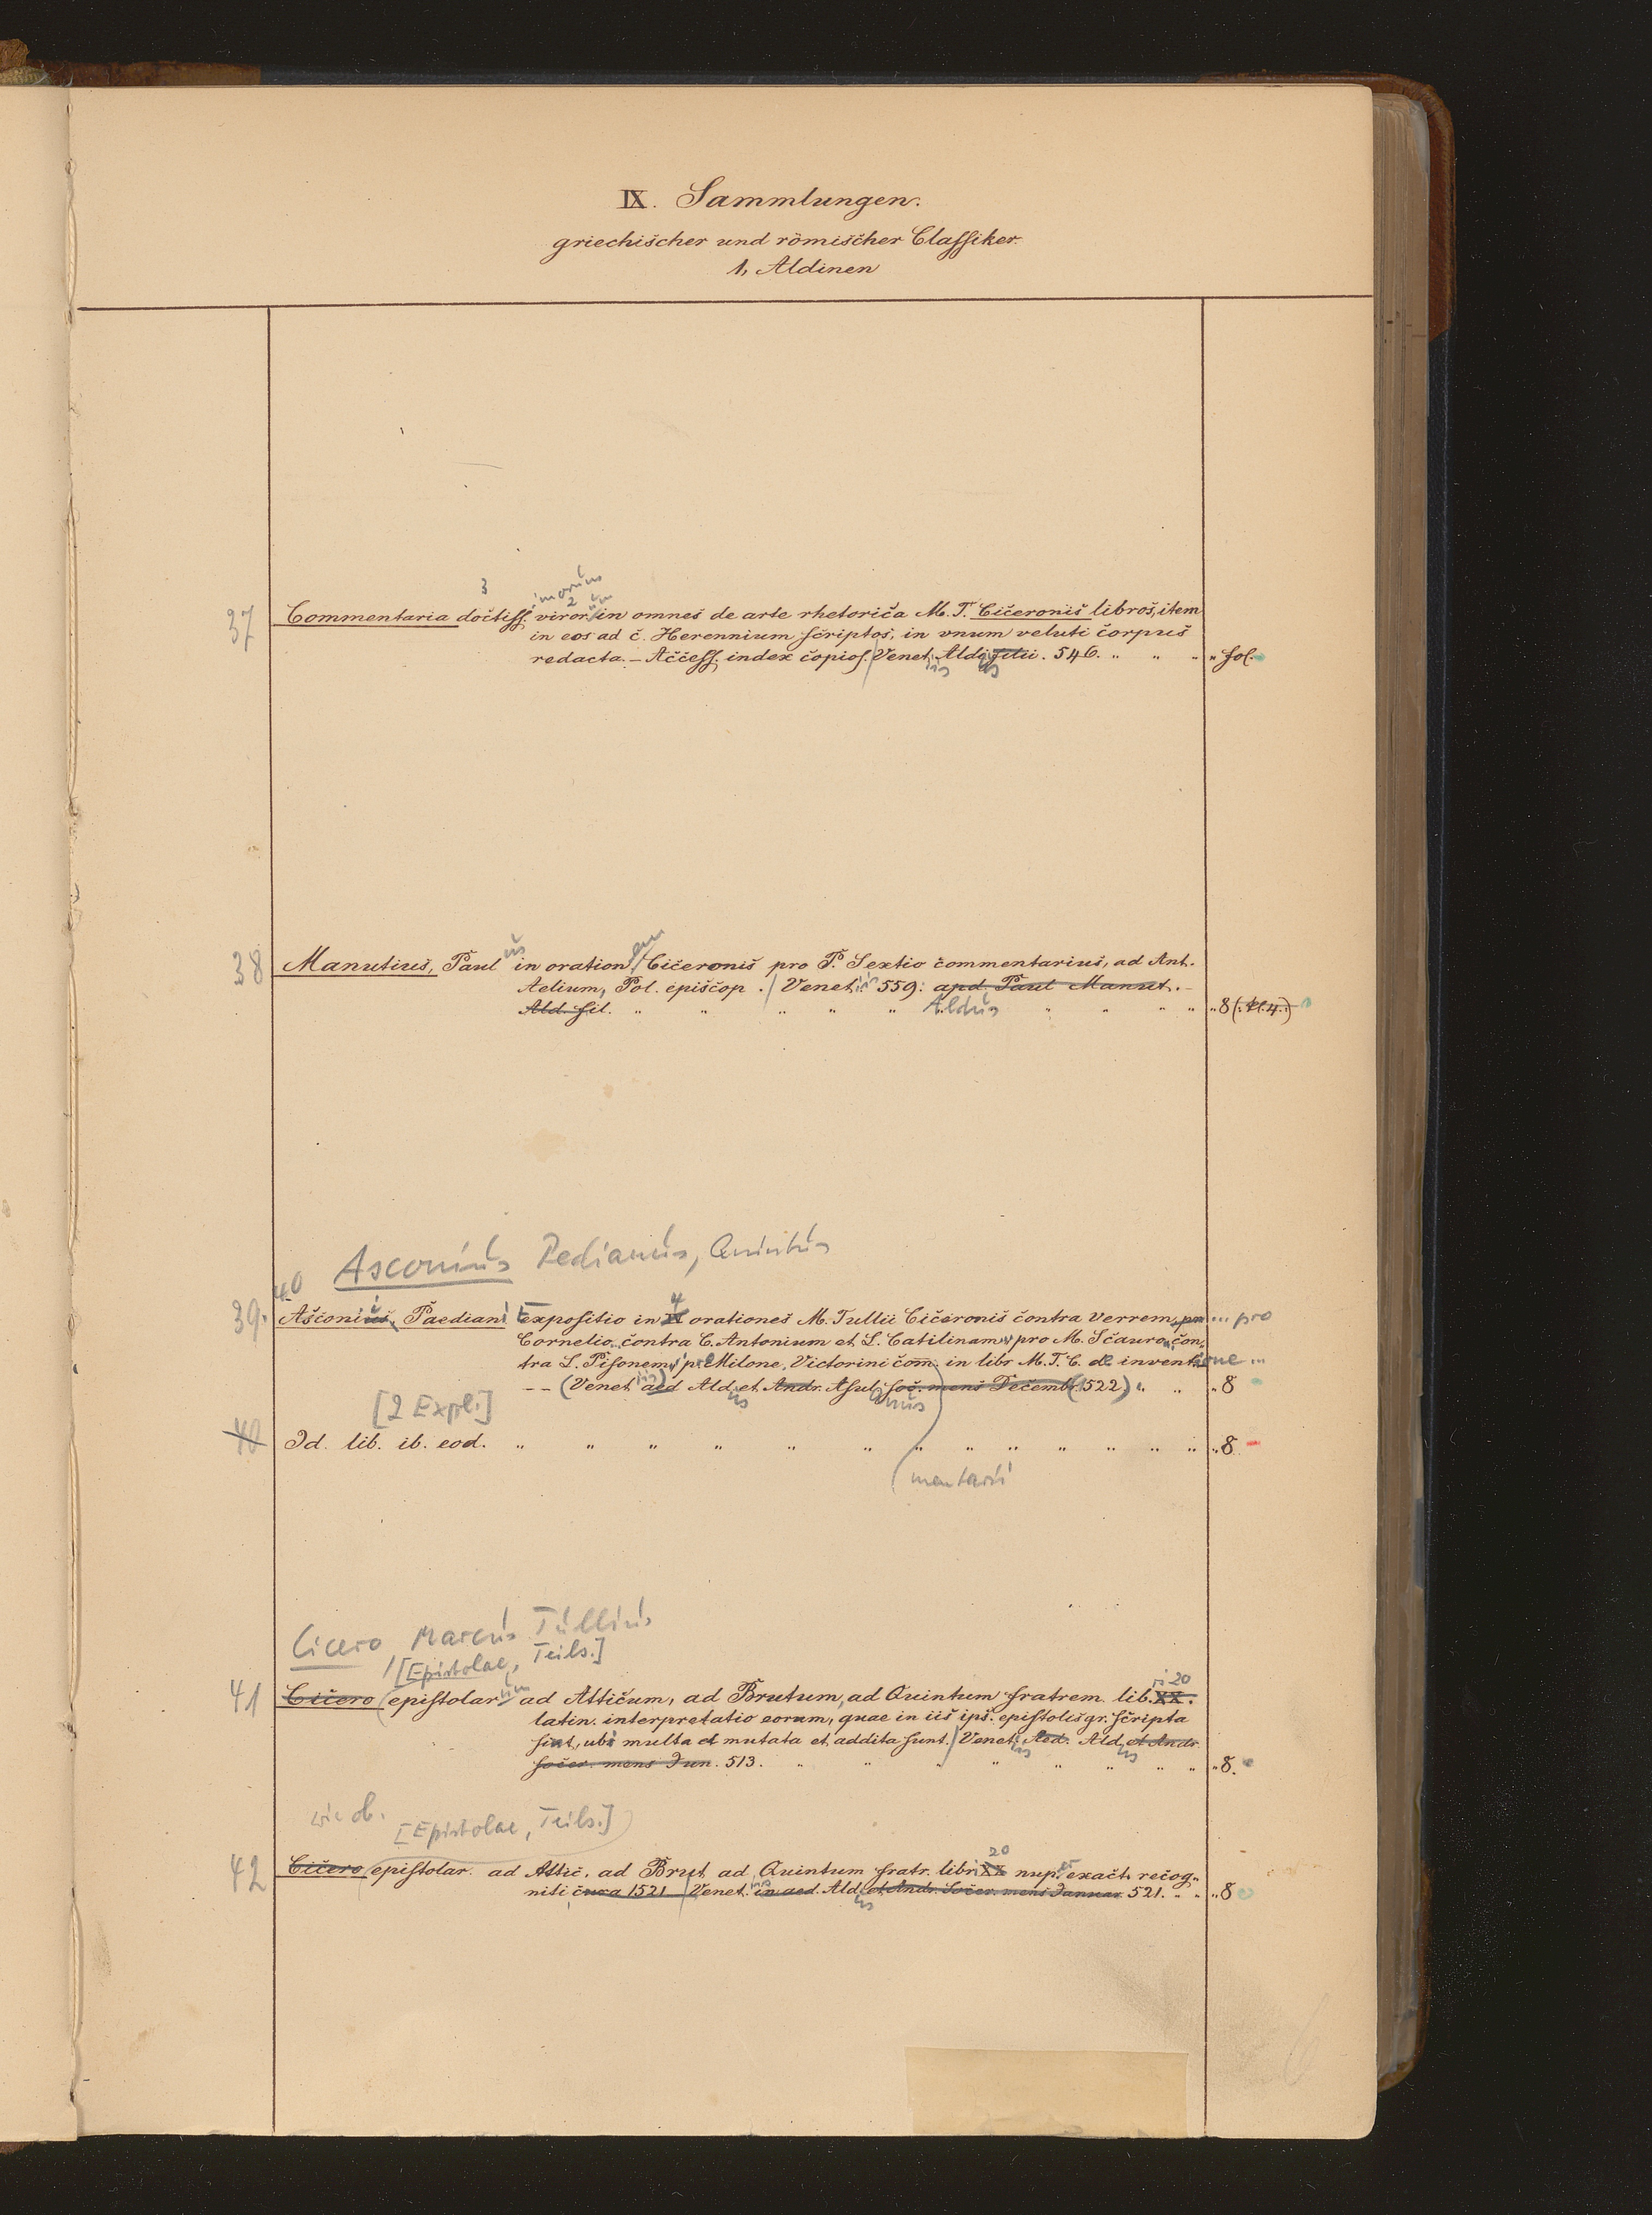 IX. Sammlungen.
griechischer und römischer Classiker.
1, Aldinen
3 imorum
2 um
37 Commentaria doctiss. viror. in omnes de arte rhetorica M. T. Ciceronis libros, item
in eos ad C. Herennium scriptos, in vnum veluti corpus
redacta. – Access. index copios. / Venet. Ald. filii. 546. " " " " fol.
iis us
us em
38 Manutius, Paul in oration. / Ciceronis pro P. Sextio commentarius, ad Ant.
Aelium, Pol. episcop. / Venet. iis 559. apd. Paul Manut. –
Ald. fil. " " " " " Aldus " " " " " 8 (: kl. 4. :)
Asconius Pedianus, Quintus
40
4
39. Asconii Paediani Expositio in orationes M. Tullii Ciceronis contra Verrem, pro ... pro
Cornelio, contra C. Antonium et L. Catilinam, pro M. Scauro, con-
tra L. Pisonem, pro Milone, Victorini com. in libr M. T. C. de inventione ...
-- (Venet. iis) aed Ald. et Andr. Asul. soc. mens Decemb. (1522) " " " 8
us anus
[2 Expl.]
40 Id. lib. ib. eod. " " " " " " " " " " " " " " 8
mentarii
Cicero Marcus Tullius
/ [Epistolae, Teils.]
um ri 20
41 Cicero (epistolar. ad Atticum, ad Brutum, ad Quintum fratrem. lib. XX.
latin. interpretatio eorum, quae in iis ips. epistolis gr. scripta
sint, ubi multa et mutata et addita sunt. / Venet. Aed. Ald. et Andr.
iis us
socer. mens Jun. 513. " " " " " " " " " 8.
wie ob. [Epistolae, Teils.]
20
42 Cicero (epistolar. ad Attic. ad Brut. ad Quintum fratr. libri XX nup. exacte recog-
niti, cura 1521 / Venet. iis in aed. Ald. et Andr. Socer. mens Januar. 521. " " " 8
us